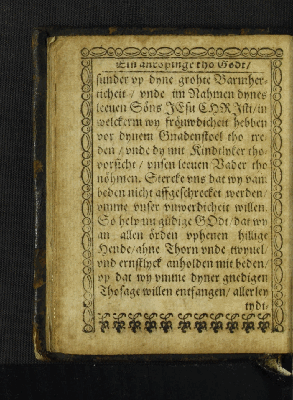 Ein anropinge tho Godt/
sunder vp dyne grohte Barmher-
ticheit / vnde im Nahmen dynes
leeuen Söns JEsu CHRJsti/ in
welckerm wy fröuwdicheit hebben
vor dynem Gnadenstoel tho re-
den / vnde dy mit Kindtlyker tho-
vorsicht / vnsen leeuen Vader tho
nöhmen. Stercke vns dat wy vam
beden nicht affgeschrecket werden/
vmme vnser vnwerdicheit willen.
So help nu güdige GOdt / dat wy
an allen örden vpheuen hillige
Hende/ ahne Thorn vnde twyuel,
vnd ernstlyck anholden mit beden,
vp dat wy vmme dyner gnedigen
Thosage willen entfangen / allerley
tydt/